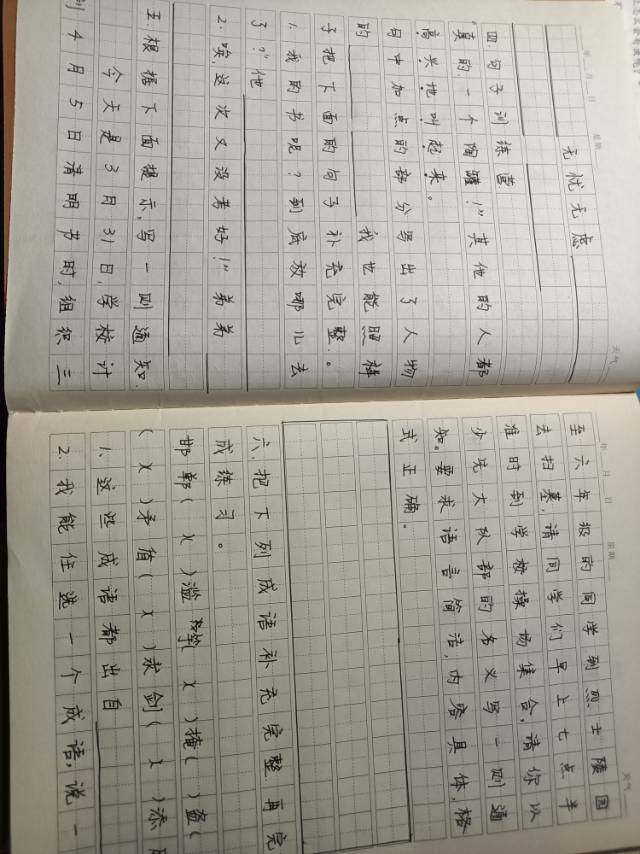 年 月 日 星期 天气
无忧无虑
四.句子训练营
"真的一个陶罐!"其他的人都
高兴地叫起来。
句中加点的部分写出了人物
的 我也能照样
子把下面的句子补充完整。
1.我的书呢?到底放哪儿去
了?"他
2."唉,这次又没考好!"弟弟
五.根据下面提示,写一则通知.
今天是3月31日,学校计
划4月5日清明节时,组织三
年 月 日 星期 天气
至六年级的同学到烈士陵园
去扫墓,请同学们早上七点半
准时到学校操场集合,请你以
少先大队部的名义写一则通
知。要求语言简洁,内容具体,格
式正确。
六.把下列成语补充完整再完
成练习。
邯郸(X)滥竽(X)掩( )盗(
(X)矛盾(X)求剑(X)添
1.这些成语都出自
2.我能任选一个成语,说一